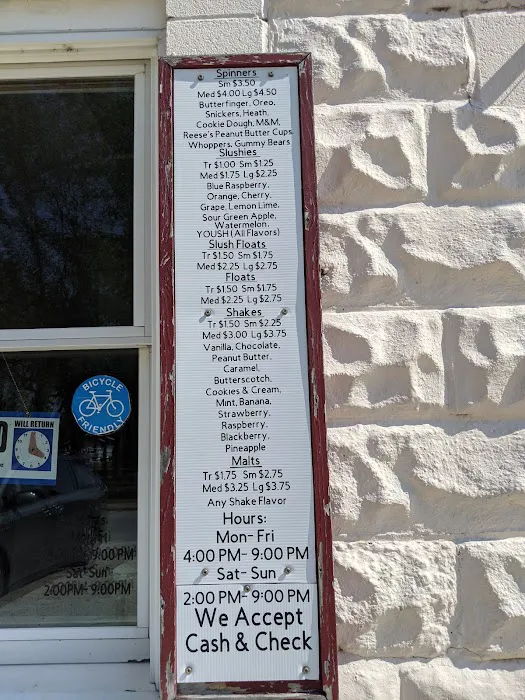 Spinners
Sm $3.50
Med $4.00 Lg $4.50
Butterfinger, Oreo,
Snickers, Heath,
Cookie Dough, M&M,
Reese's Peanut Butter Cups,
Whoppers, Gummy Bears
Slushies
Tr $1.00 Sm $1.25
Med $1.75 Lg $2.25
Blue Raspberry,
Orange, Cherry,
Grape, Lemon Lime,
Sour Green Apple,
Watermelon,
YOUSH (All Flavors)
Slush Floats
Tr $1.50 Sm $1.75
Med $2.25 Lg $2.75
Floats
Tr $1.50 Sm $1.75
Med $2.25 Lg $2.75
Shakes
Tr $1.50 Sm $2.25
Med $3.00 Lg $3.75
Vanilla, Chocolate,
Peanut Butter,
Caramel,
Butterscotch,
Cookies & Cream,
Mint, Banana,
Strawberry,
Raspberry,
Blackberry,
Pineapple
Malts
Tr $1.75 Sm $2.75
Med $3.25 Lg $3.75
Any Shake Flavor
Hours:
Mon-Fri
4:00 PM-9:00 PM
Sat-Sun
2:00 PM-9:00 PM
We Accept
Cash & Check
BICYCLE
FRIENDLY
WILL RETURN
9:00 PM
Sat-Sun
2:00PM-9:00PM